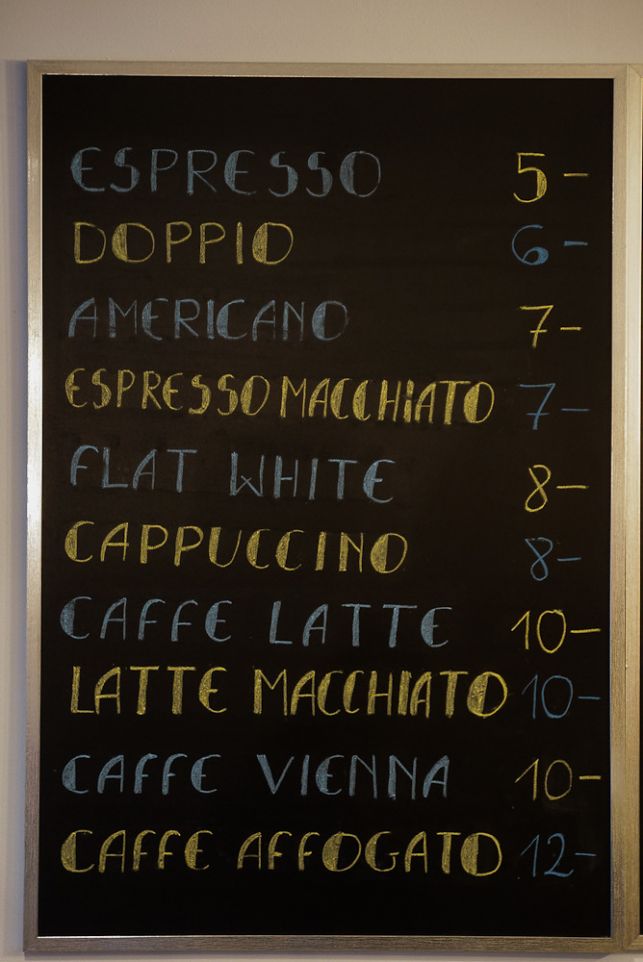 ESPRESSO 5-
DOPPIO 6-
AMERICANO 7-
ESPRESSO MACCHiATO 7-
FLAT WHITE 8-
CAPPUCCINO 8-
CAFFE LATTE 10-
LATTE MACCHIATO 10-
CAFFE VIENNA 10-
CAFFE AFFOGATO 12-